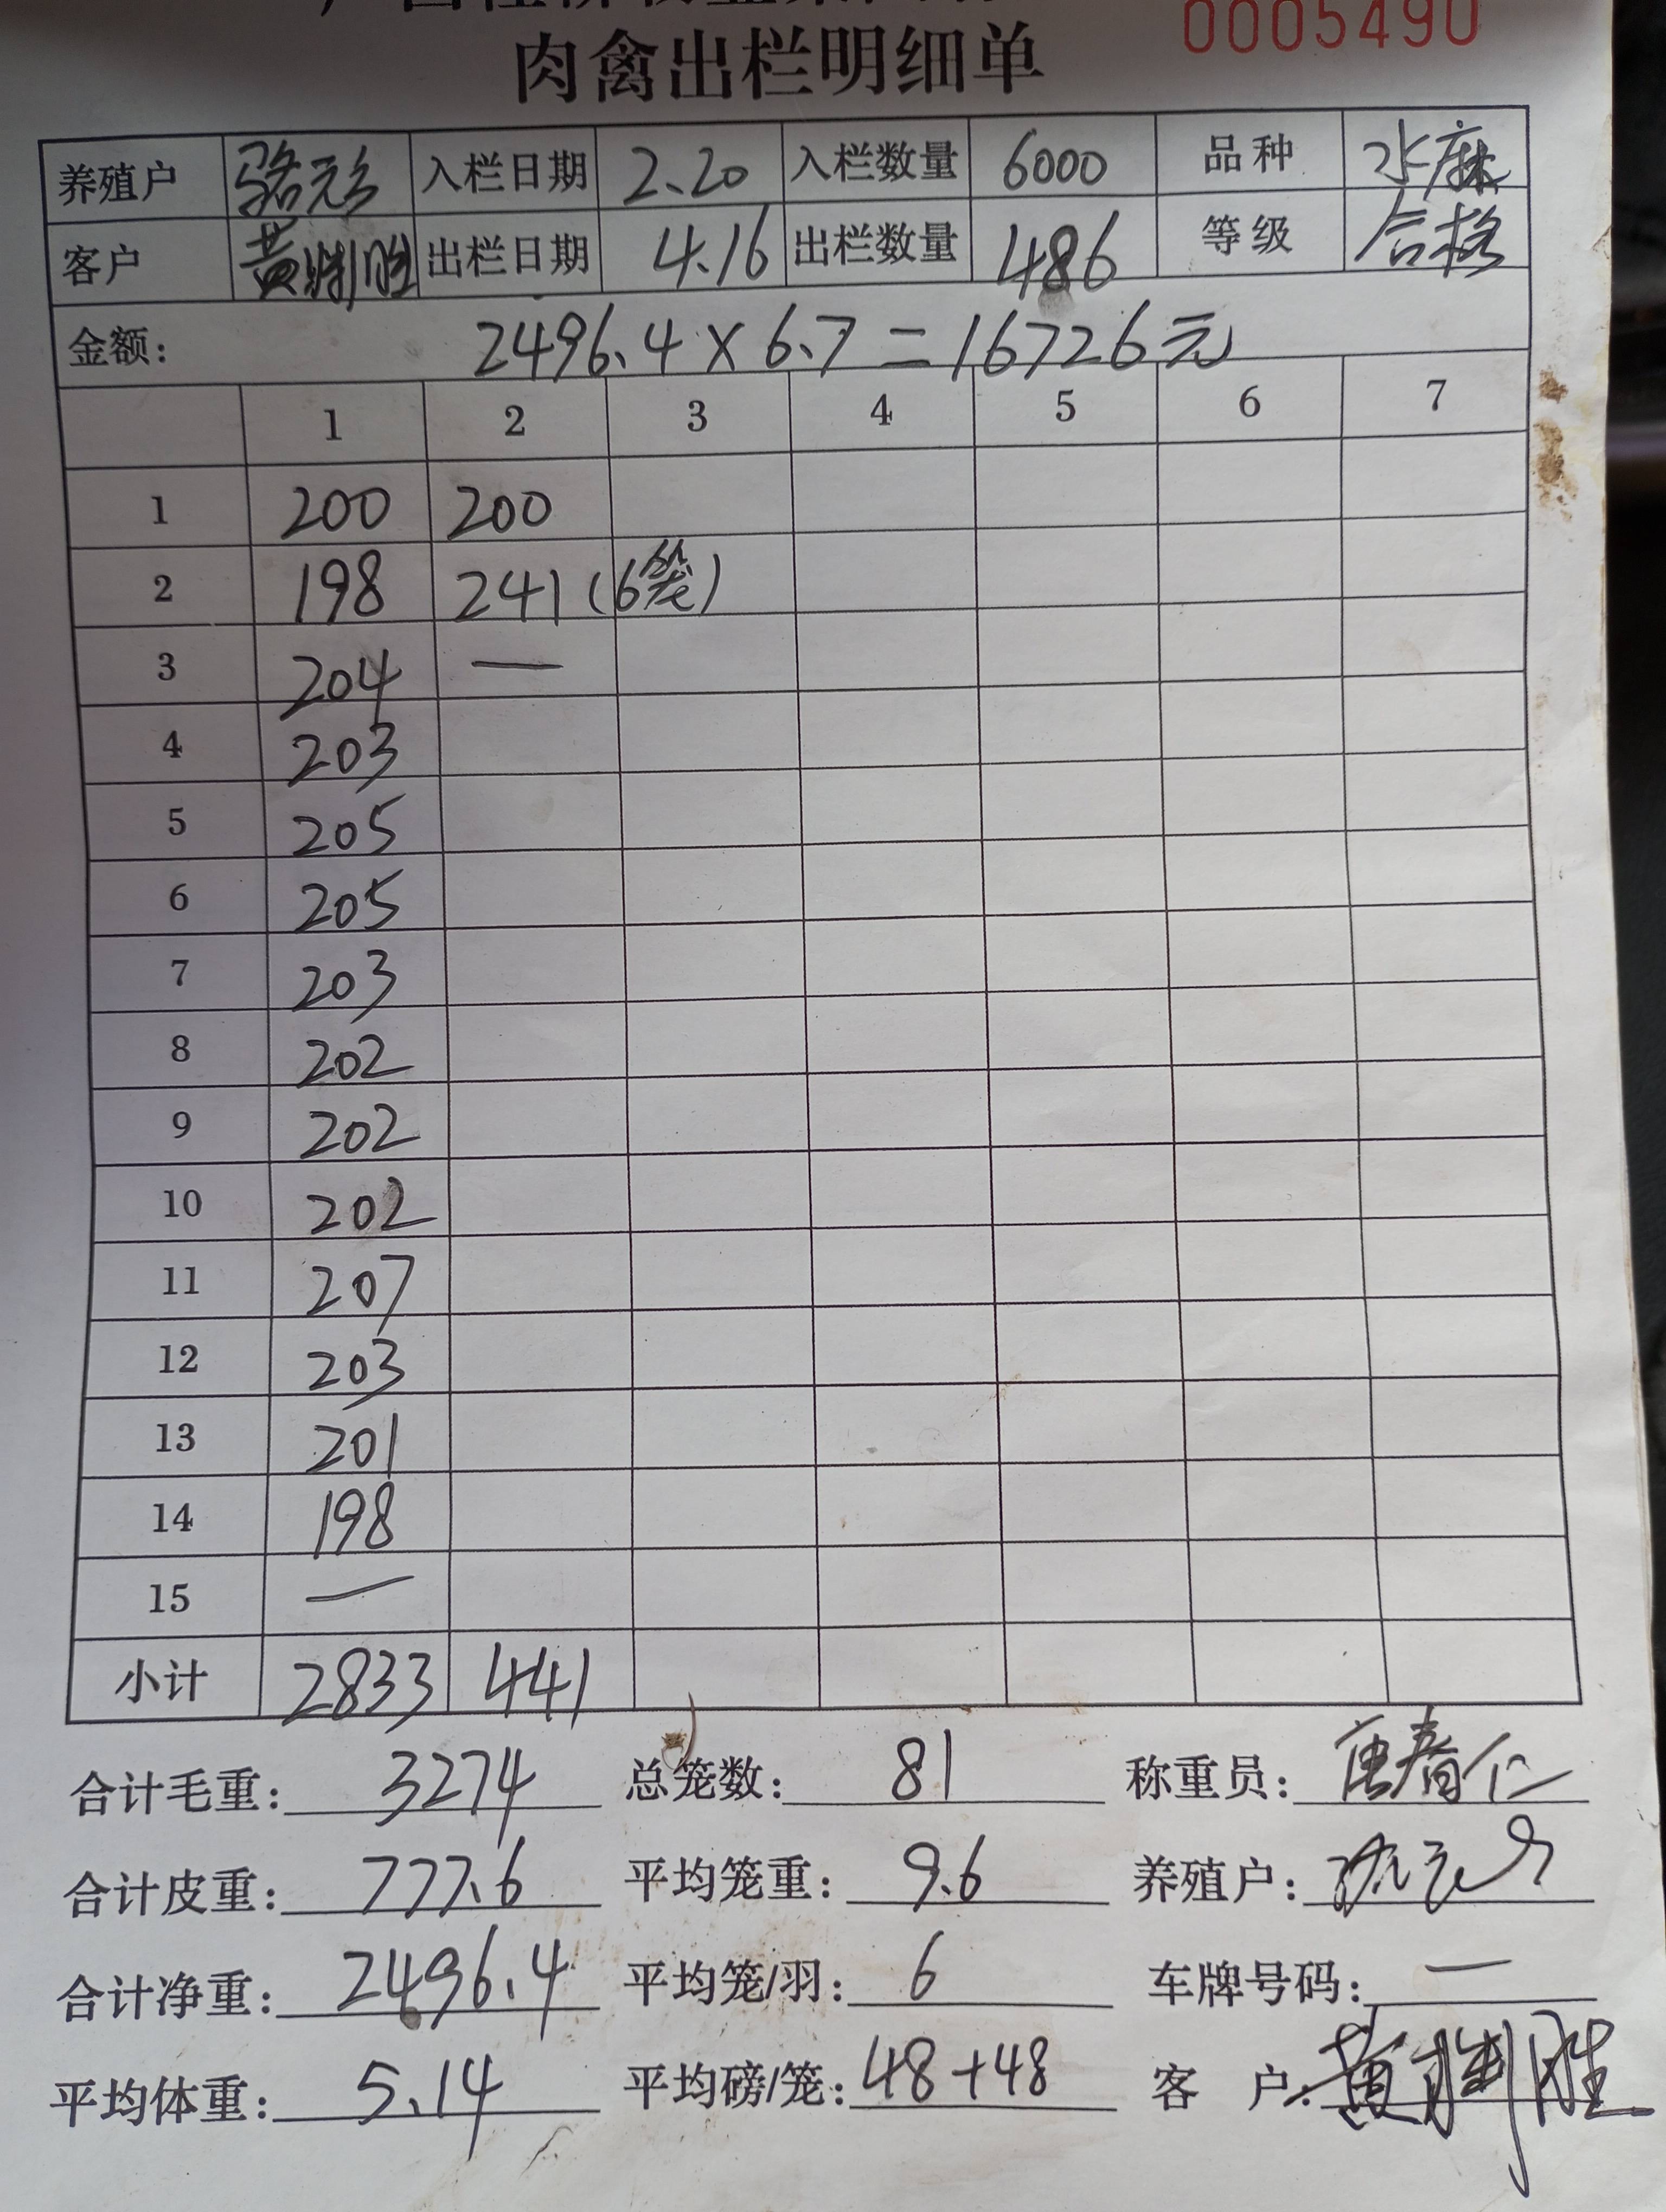 0005490
肉禽出栏明细单
养殖户 骆元 入栏日期 2.20 入栏数量 6000 品种 水麻
客户 黄胜 出栏日期 4.16 出栏数量 486 等级 合格
金额: 2496.4×6.7=16726元
1 2 3 4 5 6 7
1 200 200
2 198 241(6笼)
3 204 —
4 203
5 205
6 205
7 203
8 202
9 202
10 202
11 207
12 203
13 201
14 198
15 —
小计 2833 441
合计毛重: 3274 总笼数: 81 称重员: 唐春仁
合计皮重: 777.6 平均笼重: 9.6 养殖户:
合计净重: 2496.4 平均笼/羽: 6 车牌号码: —
平均体重: 5.14 平均磅/笼: 48+48 客 户: 黄胜